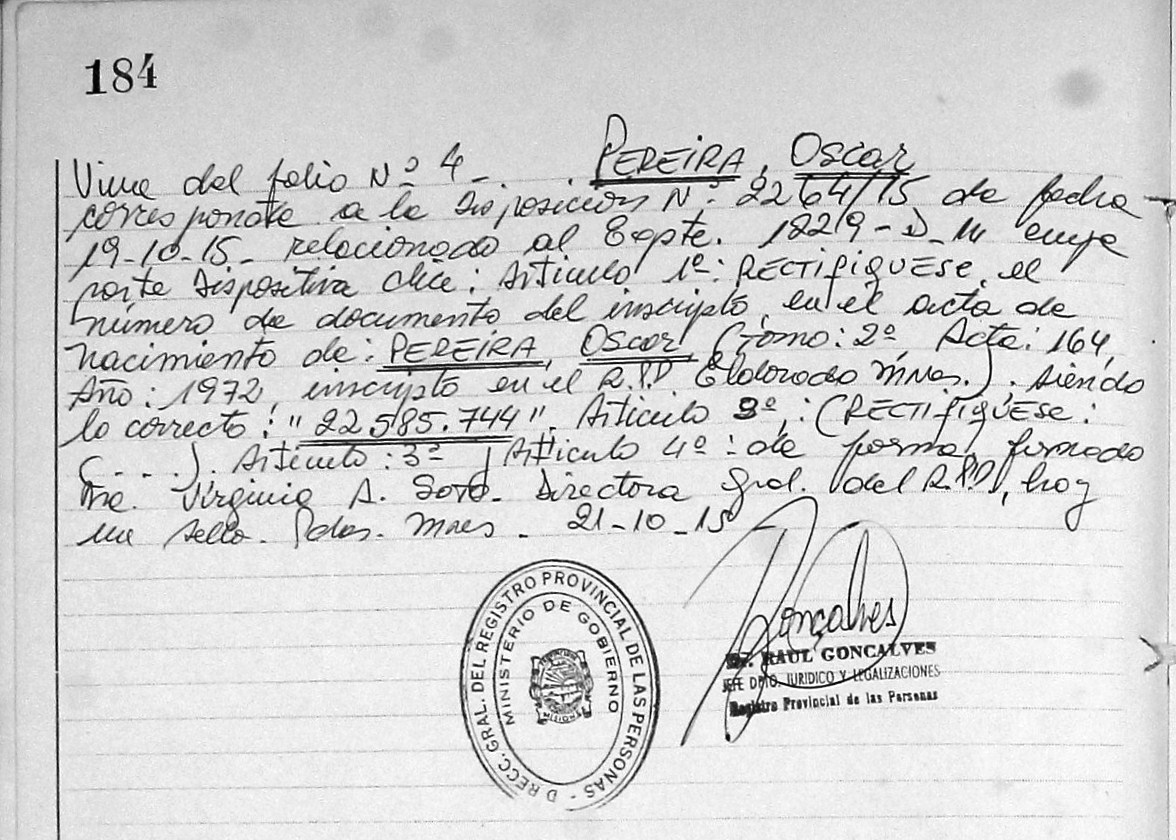 184
Viene del folio Nº 4_ . . PEREIRA, Oscar
corresponde a la Disposición Nº: 2264/15 de fecha
19-10-15_ relacionado al Expte. 1829-D-14 cuya
parte Dispositiva dice: Artículo 1º: RECTIFIQUESE, el
número de documento del inscripto, en el acta de
nacimiento de: PEREIRA, Oscar (Tomo: 2º Acta: 164,
Año: 1972, inscripto en el R.P.P Eldorado Mnes.). siendo
lo correcto: "22.585.744". Artículo 2º: (RECTIFIQUESE:
(. . . .). Artículo: 3º y Artículo 4º: de forma, firmado
Virginia A. Directora Gral. del R.P.P, hoy
sello. Pdas. Mnes_ 21-10-15
Gonçalves
Dr. RAUL GONCALVES
JEFE DPTO. JURIDICO Y LEGALIZACIONES
Registro Provincial de las Personas
DIRECC. GRAL. DEL REGISTRO PROVINCIAL DE LAS PERSONAS -
MINISTERIO DE GOBIERNO
MISIONES